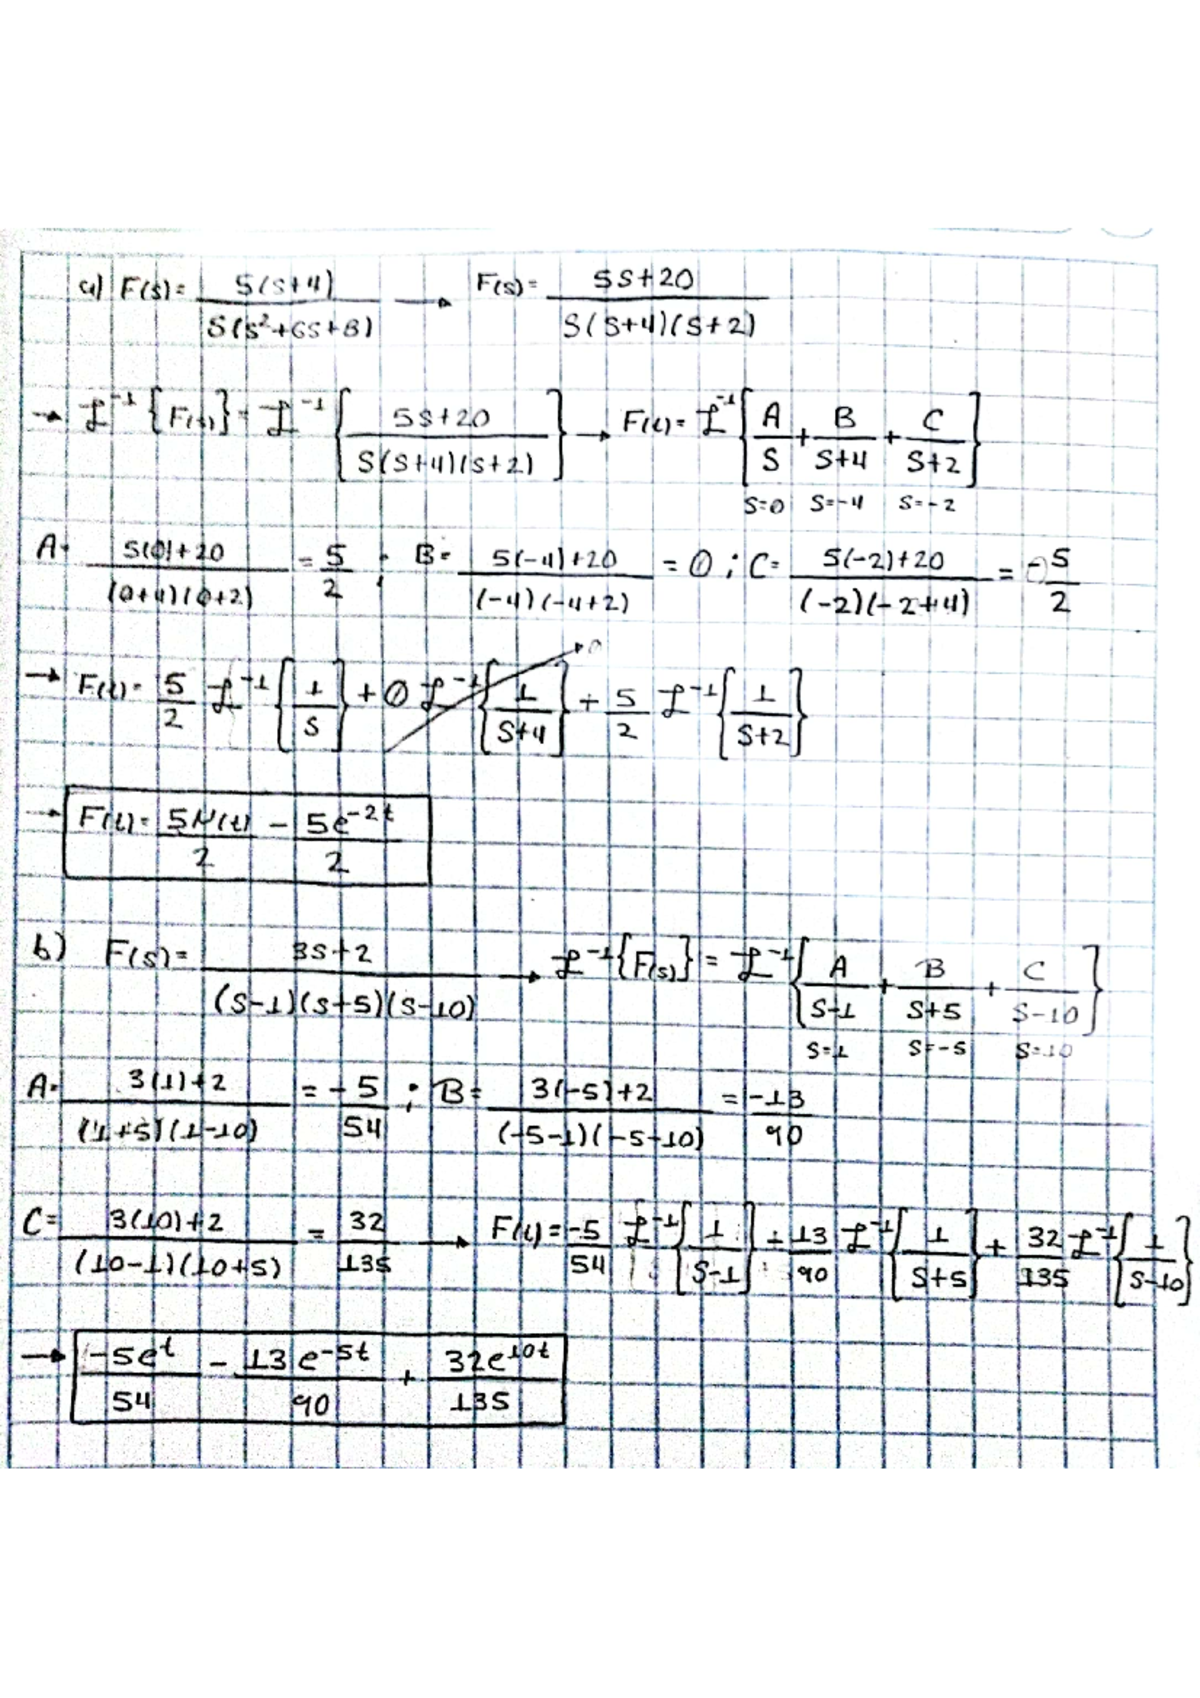 a) F(s) = 5(s+4) / S(s²+6s+8) → F(s) = 5s+20 / S(s+4)(s+2)
→ ℒ⁻¹{F(s)} = ℒ⁻¹{5s+20 / S(s+4)(s+2)} → F(t) = ℒ⁻¹{A/S + B/S+4 + C/S+2}
S=0 S=-4 S=-2
A = 5(0)+20 / (0+4)(0+2) = 5/2 ; B = 5(-4)+20 / (-4)(-4+2) = 0 ; C = 5(-2)+20 / (-2)(-2+4) = -5/2
→ F(t) = 5/2 ℒ⁻¹{1/S} + 0 ℒ⁻¹{1/S+4} + 5/2 ℒ⁻¹{1/S+2}
→ F(t) = 5μ(t)/2 - 5e^-2t/2
b) F(s) = 3s+2 / (s-1)(s+5)(s-10) → ℒ⁻¹{F(s)} = ℒ⁻¹{A/S-1 + B/S+5 + C/S-10}
S=1 S=-5 S=10
A = 3(1)+2 / (1+5)(1-10) = -5/54 ; B = 3(-5)+2 / (-5-1)(-5-10) = -13/90
C = 3(10)+2 / (10-1)(10+5) = 32/135 → F(t) = -5/54 ℒ⁻¹{1/S-1} + 13/90 ℒ⁻¹{1/S+5} + 32/135 ℒ⁻¹{1/S-10}
→ -5e^t/54 - 13e^-5t/90 + 32e^10t/135